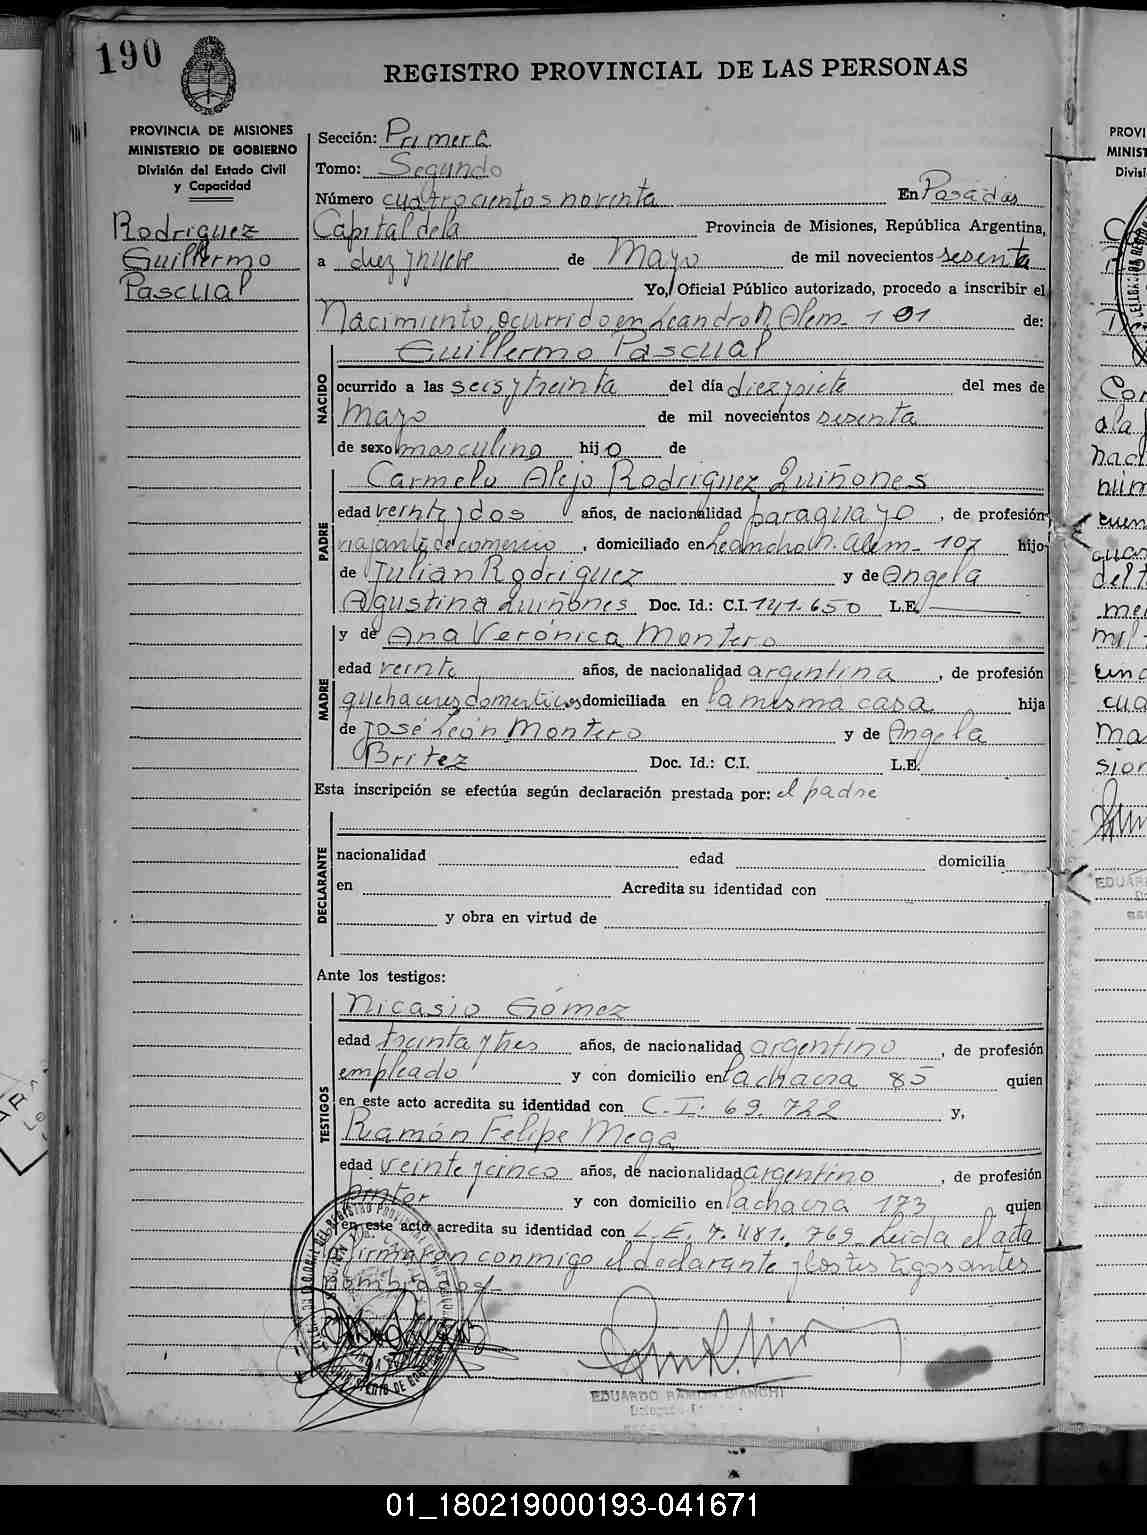 190
REGISTRO PROVINCIAL DE LAS PERSONAS
PROVINCIA DE MISIONES
MINISTERIO DE GOBIERNO
División del Estado Civil
y Capacidad
Rodriguez
Guillermo
Pascual
Sección: Primera
Tomo: Segundo
Número cuatrocientos noventa En Posadas
Capital de la Provincia de Misiones, República Argentina,
a diez y nueve de Mayo de mil novecientos sesenta
Yo, Oficial Público autorizado, procedo a inscribir el
Nacimiento, ocurrido en Leandro N. Alem - 101 de:
Guillermo Pascual
NACIDO
ocurrido a las seis y treinta del día diez y siete del mes de
Mayo de mil novecientos sesenta
de sexo masculino hijo de
PADRE
Carmelo Alejo Rodriguez Quiñones
edad veinte y dos años, de nacionalidad paraguayo, de profesión
viajante de comercio, domiciliado en Leandro N. Alem - 107 hijo
de Julian Rodriguez y de Angela
Agustina Quiñones Doc. Id.: C.I. 141.650 L.E.
MADRE
y de Ana Verónica Montero
edad veinte años, de nacionalidad argentina, de profesión
quehaceres domesticos domiciliada en la misma casa hija
de José León Montero y de Angela
Britez Doc. Id.: C.I. L.E.
Esta inscripción se efectúa según declaración prestada por: el padre
DECLARANTE
nacionalidad edad domicilia
en Acredita su identidad con
y obra en virtud de
Ante los testigos:
TESTIGOS
Nicasio Gómez
edad treinta y tres años, de nacionalidad argentino, de profesión
empleado y con domicilio en la chacra 85 quien
en este acto acredita su identidad con C.I. 69.722 y,
Ramón Felipe Mega
edad veinte y cinco años, de nacionalidad argentino, de profesión
pintor y con domicilio en la chacra 173 quien
en este acto acredita su identidad con L.E. 7.481.769 - Leida el acta
firmaron conmigo el declarante y los testigos antes
nombrados -
EDUARDO RAMON BIANCHI
01_180219000193-041671